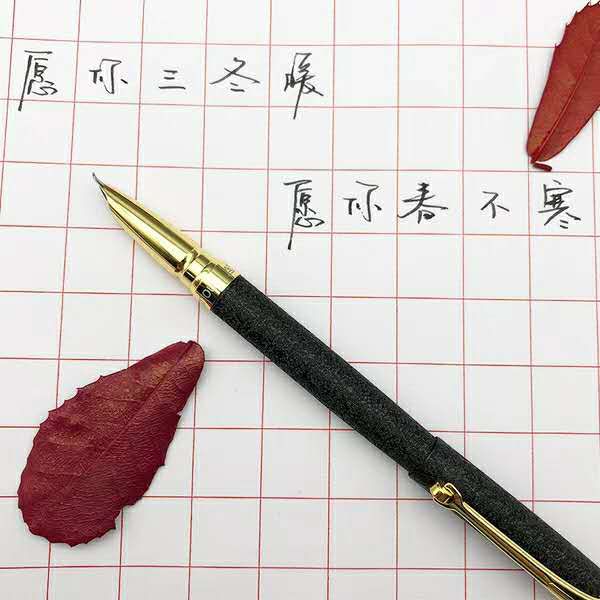 愿你三冬暖
愿你春不寒